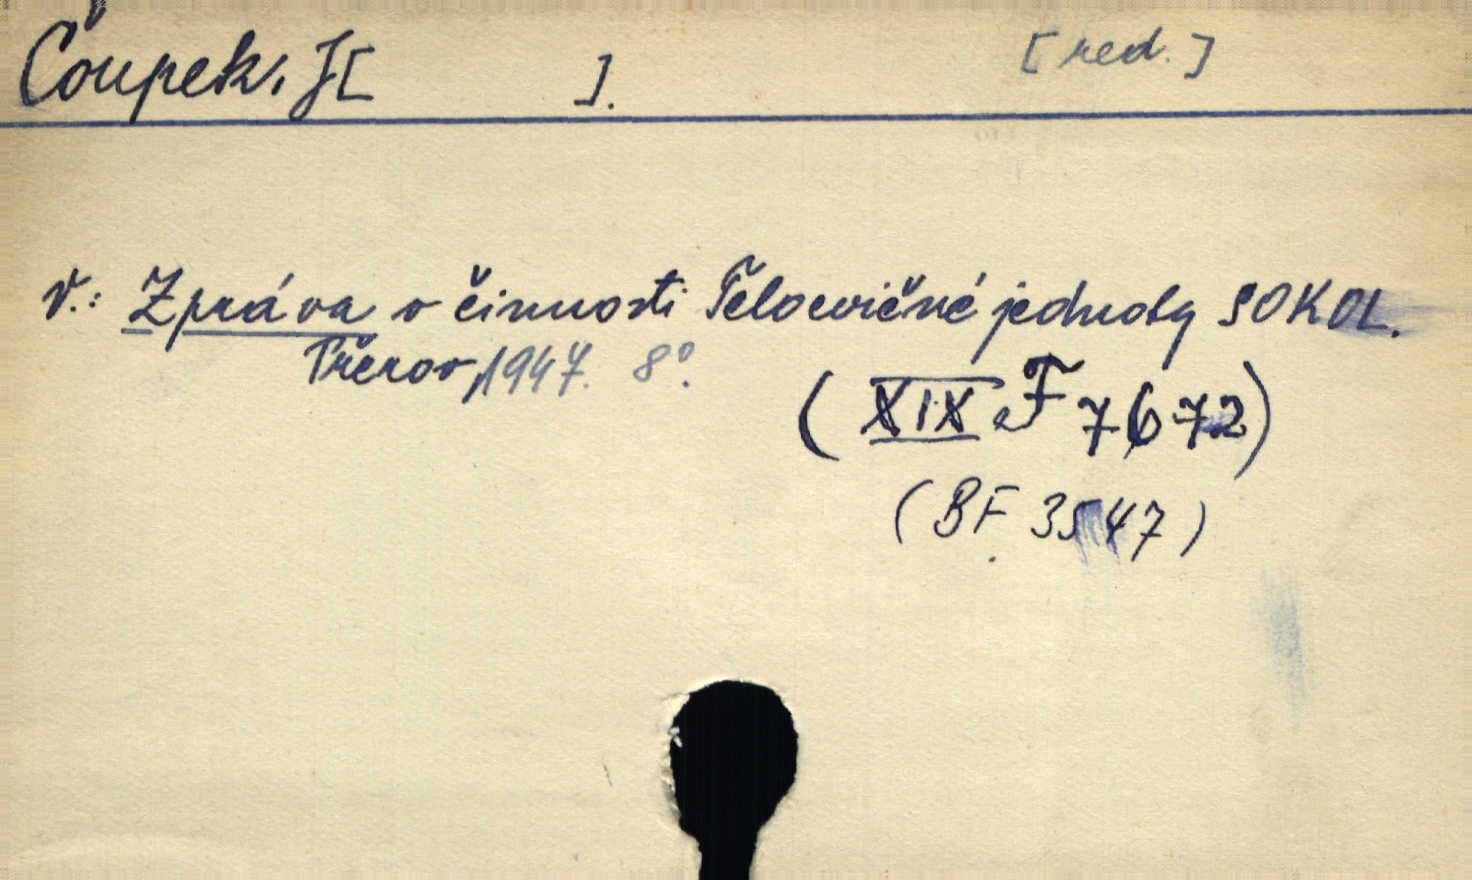 Čoupek, J[ ]. [red.]
v.: Zpráva o činnosti Tělocvičné jednoty SOKOL.
Přerov, 1947. 8°.
(XIX F 7672)
(BF 3547)